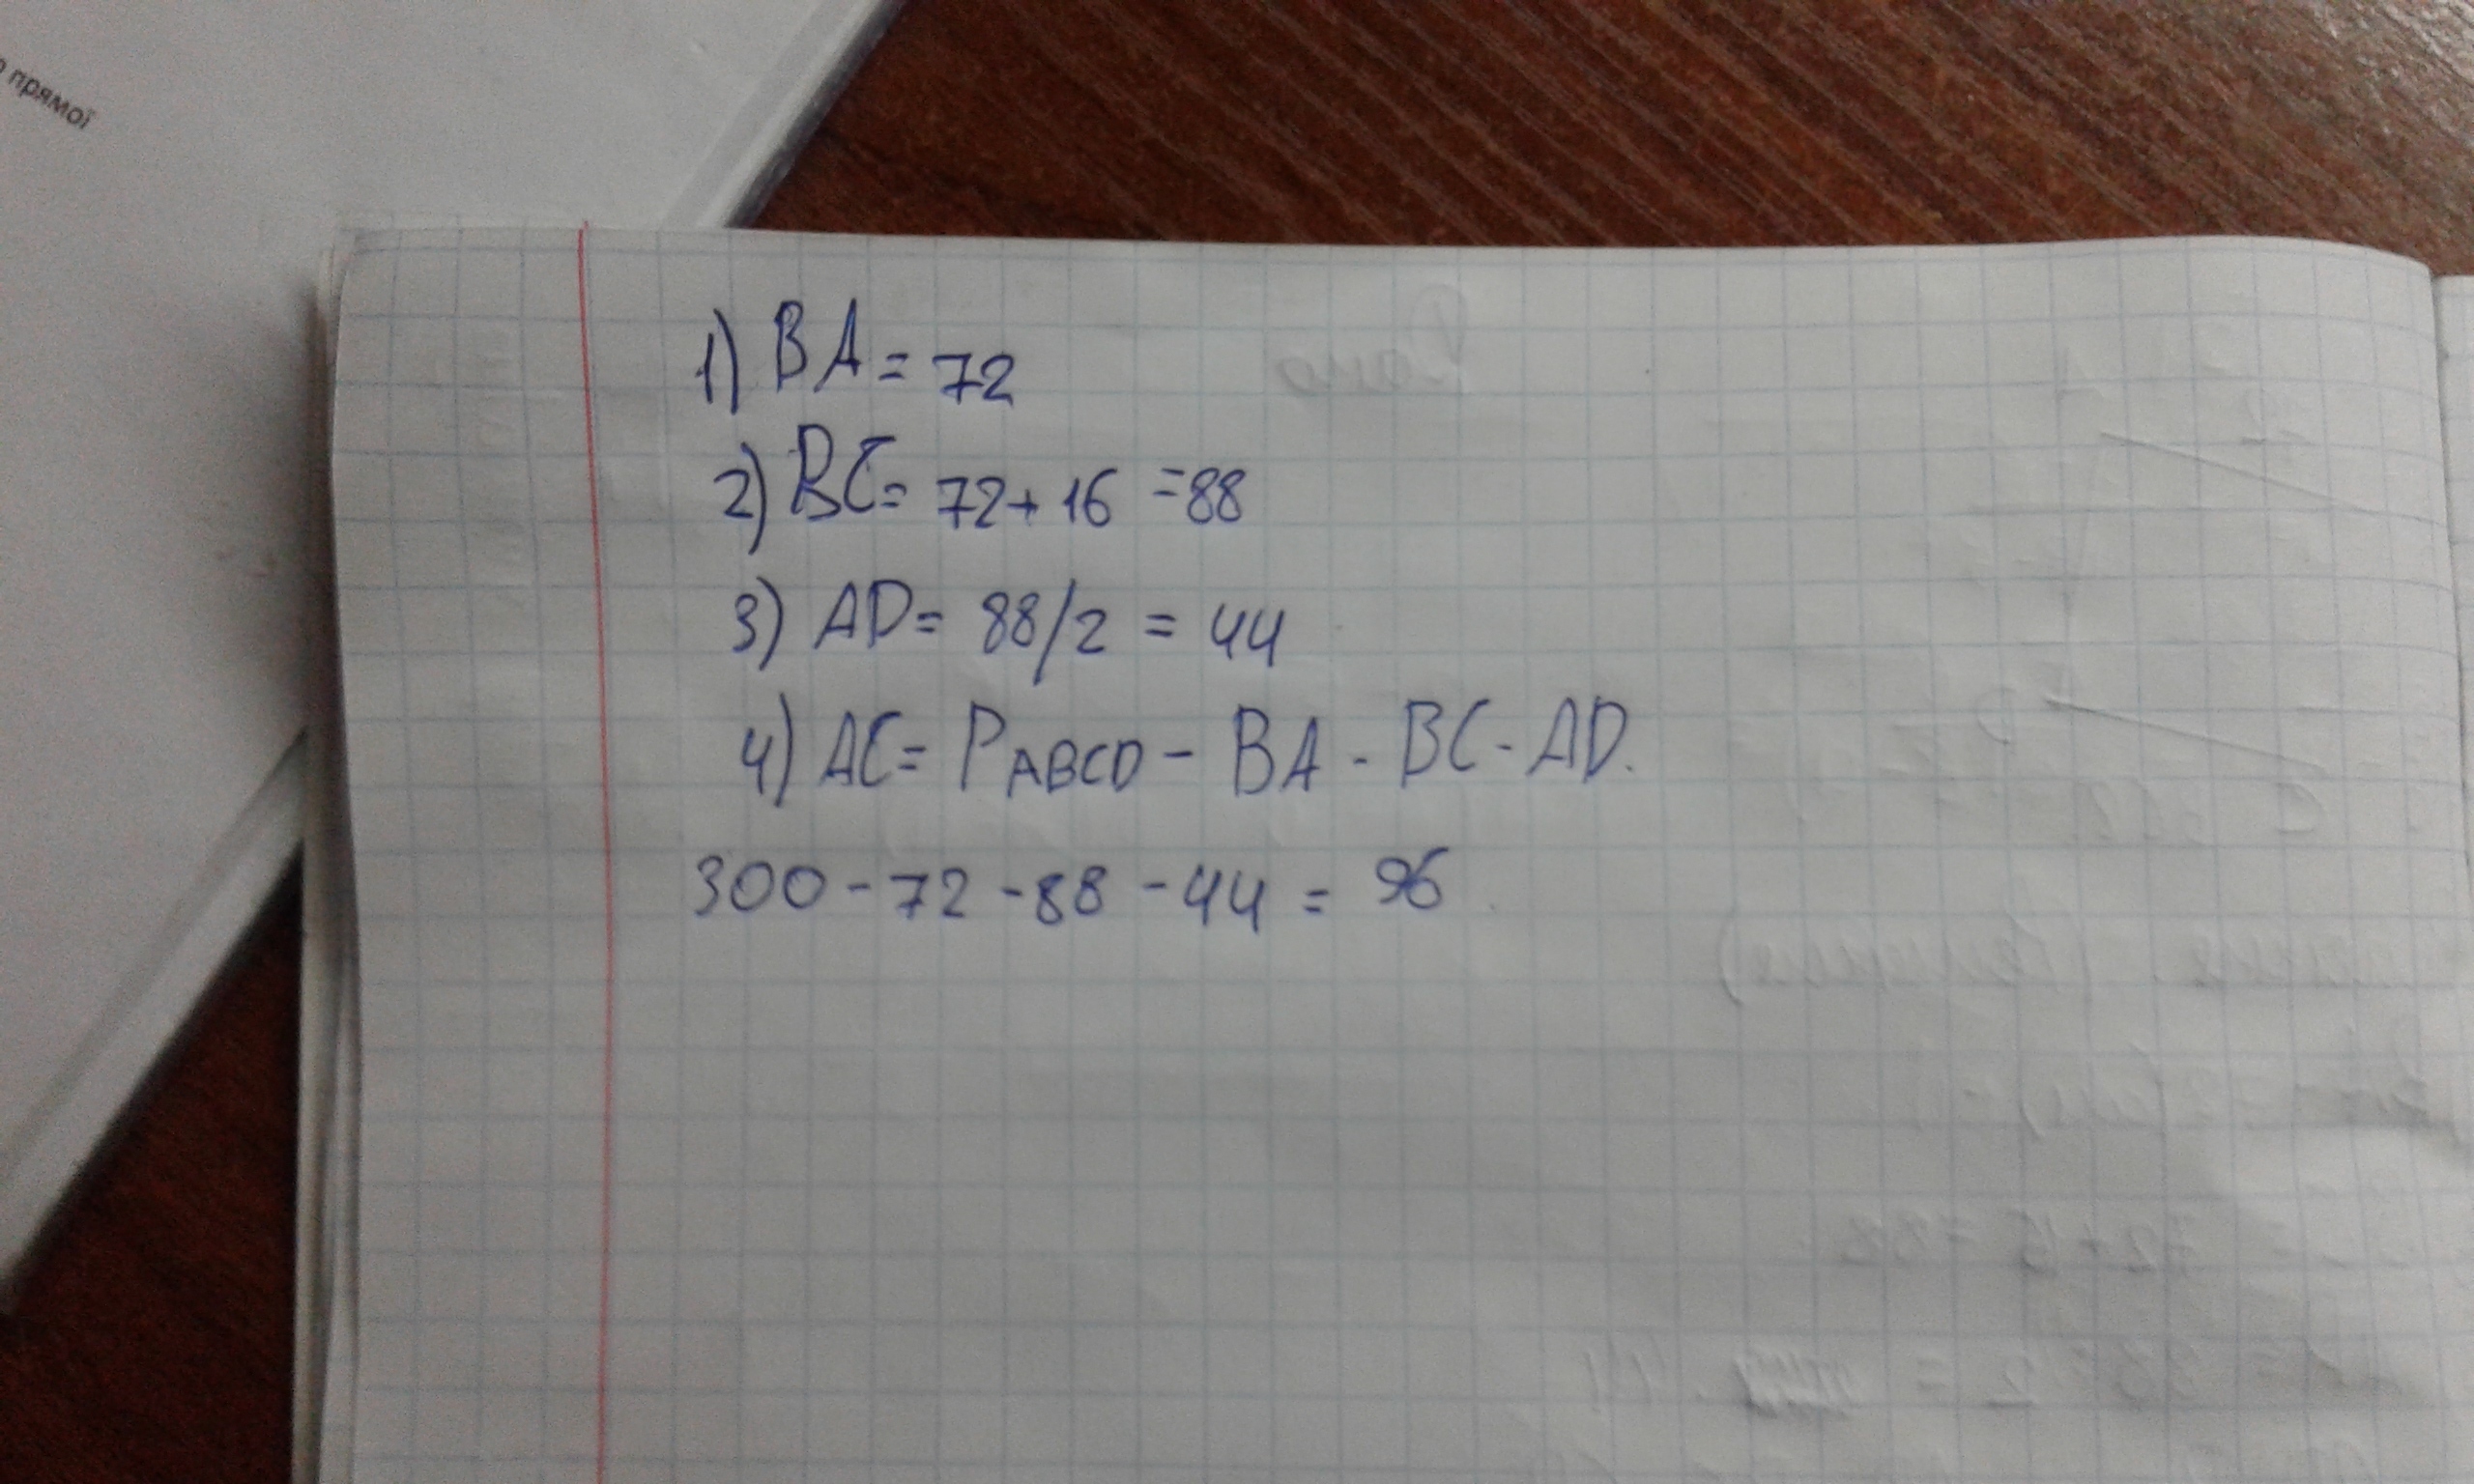 прямої
1) BA = 72
2) BC = 72 + 16 = 88
3) AD = 88/2 = 44
4) AC = PABCD - BA - BC - AD.
300 - 72 - 88 - 44 = 96